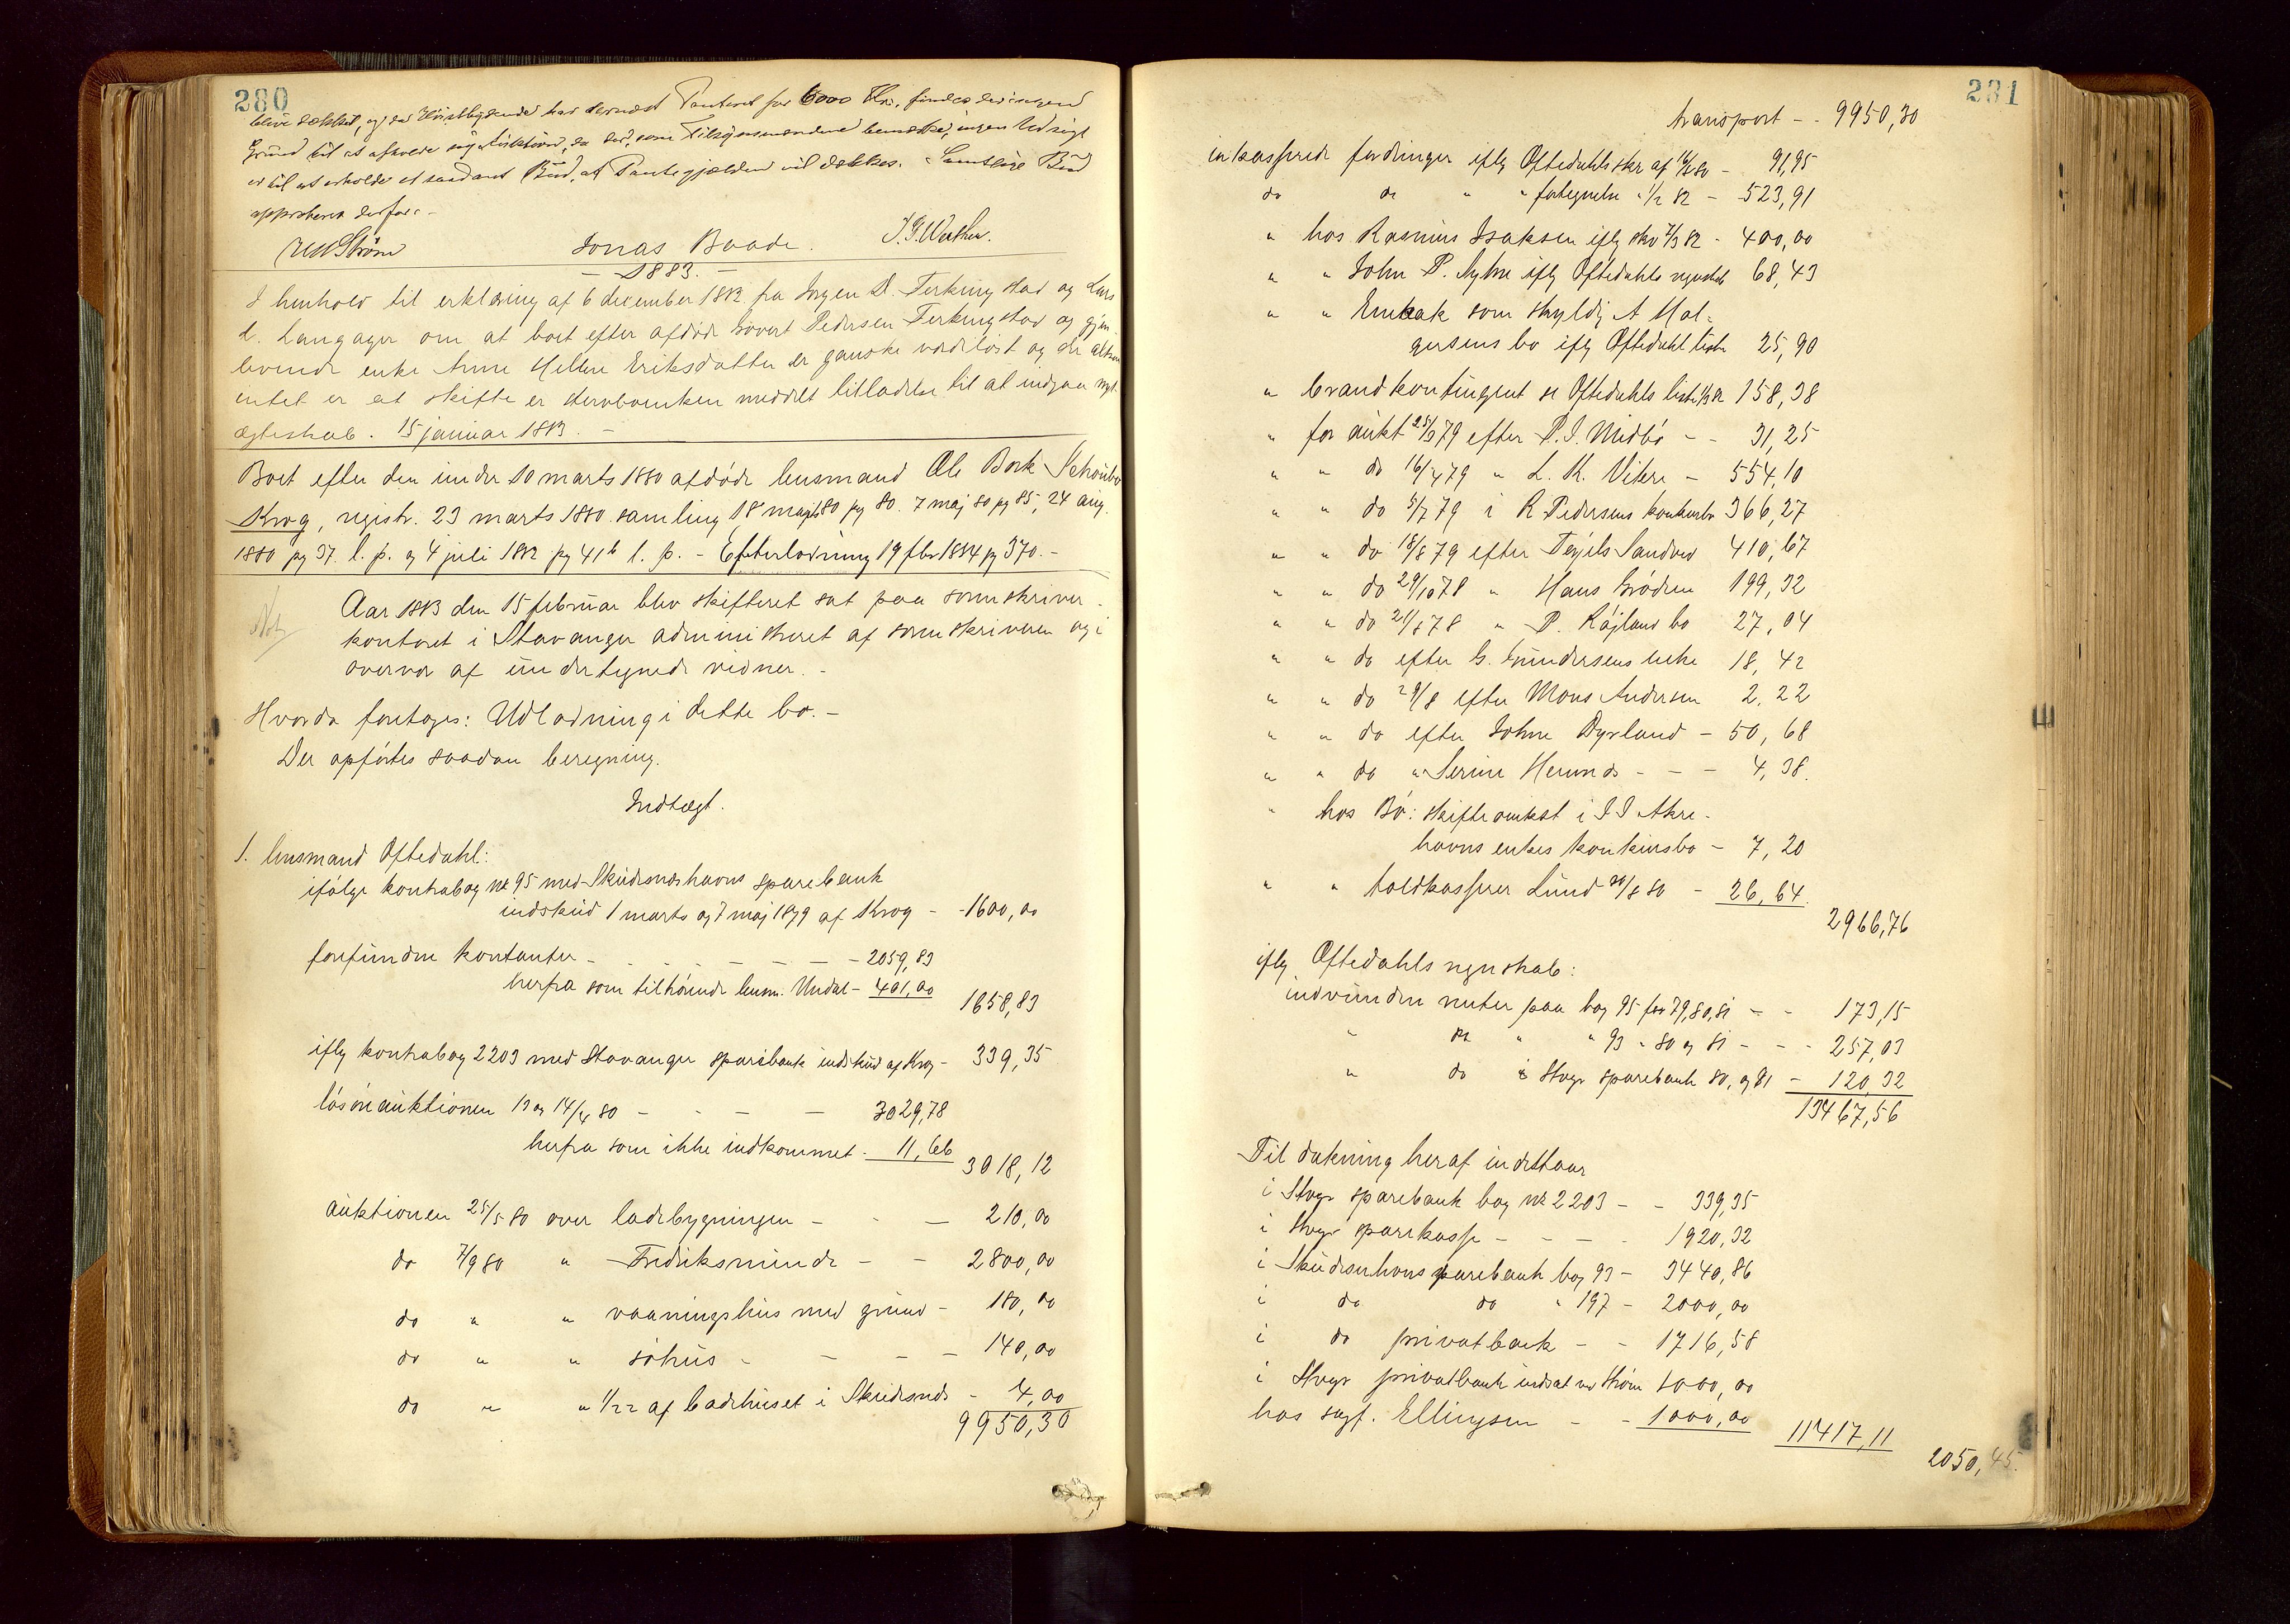 280
blive dækket, og da Høistbydende har dernæst Panteret for 6000 Kr., findes der ingen
Grund til at afholde ny Auktion, da der, som Tilstedekommende bemærked, ingen Udsigt
er til at erholde et saadant Bud, at Pantegjælden vil dækkes. Samtlige Bud
approberes derfor. -
Jonas Baade.
- 1883. -
I henhold til erklæring af 6 december 1882 fra Jørgen D. Ferkingstad og Lars
L. Langager om at boet efter afdøde Sivert Pedersen Ferkingstad og gjen-
levende enke Anne Hellene Eriksdatter er ganske værdiløst og der altsaa
intet er at skifte er stervboenken meddelt tilladelse til at indgaa nyt
ægteskab. 15 januar 1883. -
Boet efter den under 10 marts 1880 afdøde lensmand Ole Bork Schouboe
Krog, registr. 23 marts 1880. samling 18 maj 80 pg 80. 7 maj 80 pg 85, 24 aug.
1880 pg 37. l. p. og 4 juli 1882 pg 41b l. p. - Efterlodning 19 fbr 1884 pg 370. -
Aar 1883 den 15 februar blev skifteret sat paa sorenskriver-
kontoret i Stavanger administreret af sorenskriveren og i
overvær af undertegnede vidner. -
Hvorda foretoges: Udlodning i dette bo. -
Der opførtes saadan beregning.
Indtægt.
1. lensmand Oftedahl:
ifølge kontrabog № 95 med Skudesneshavns sparebank
indskud 1 marts og 7 maj 1879 af Krog - - 1600,00
forefundne kontanter - - - - - - 2059,83
herfra som tilhørende lensm. Undal - 401,00
1658,83
ifly kontrabog 2203 med Stavanger sparebank indskud af Krog - 339,35
løsøreauktionen 13 og 14/4 80 - - - - 3029,78
herfra som ikke indkommet - 11,66
3018,12
auktionen 25/5 80 over ladebygningen - - - 210,00
do 7/9 80 " Fredriksminde - - 2800,00
do " " vaaningshus med grund - 180,00
do " " søhus - - - - 140,00
do " " 1/22 af badehuset i Skudesnes - 4,00
9950,30
281
transport - - 9950,30
inkasserede fordringer ifly Oftedahls skr af - 91,95
do do " " fortegnelse " 1/2 82 - 523,91
" hos Rasmus Isaksen ifly skr 7/3 82 - 400,00
" " John P. Nyhre ifly Oftedahls regnskab 68,43
" " som skyldig A Hol-
gersens bo ifly Oftedahl liste 25,90
" brandkontingent se Oftedahls liste 158,38
" for aukt 25/ 79 efter P. I. Midbø - - 31,25
" " do 16/4 79 " L. K. Vikre - 554,10
" " do 5/7 79 i R Pedersens konkursbo 366,27
" " do 18/8 79 efter Terjels Sandved 410,67
" " do 29/10 78 " Hans Brødren 199,32
" " do 21/8 78 " P. Røjland bo 27,04
" " do efter G. Gundersens enke 18,42
" " do 29/8 efter Mons Andersen 2,22
" " do efter Johne Dyrland - 50,68
" " do " Serine - - - 4,38.
" hos Bø: skifteomkost i I I Akre-
havns enkes konkursbo - 7,20
" " toldkasserer Lund 20/8 80 - 26,64.
2966,76
ifly Oftedahls regnskab:
indvundne renter paa bog 95 for 79,80,81 - - 173,15
" do " " 93 " 80 og 81 - - - 257,03
" do i Stvgr sparebank 80, og 81 - 120,32
13467,56
Til dækning heraf indestaar
i Stvgr sparebank bog № 2203 - - 339,35
i Stvgr sparekasse - - - - 1920,32
i Skudesnhavns sparebank bog 93 - 3440,86
i do do " 197 - 2000,00
i do privatbank - - 1716,58
i Stvgr privatbank indsat ved Strøm 1000,00
hos sagf. Ellingsen - - 1000,00 11417,11
2050,45.